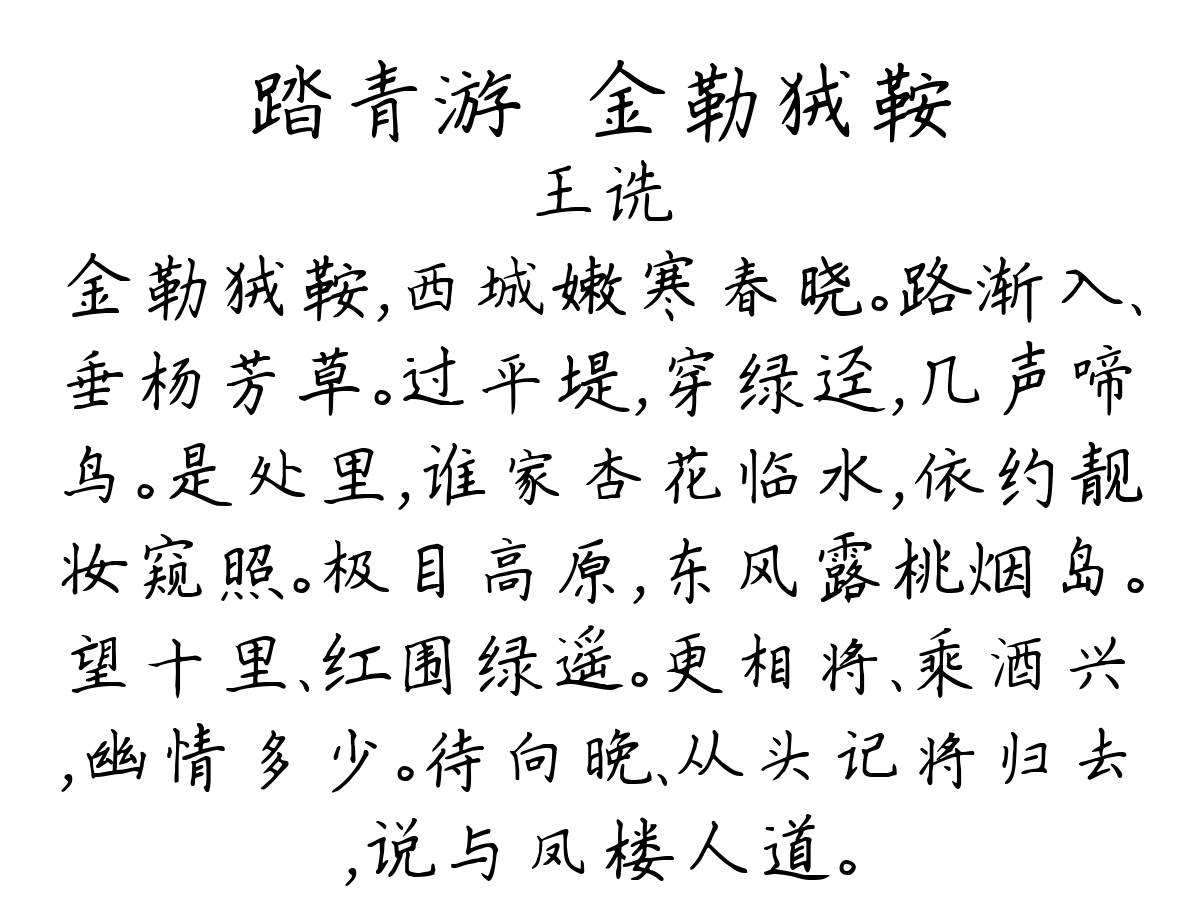 踏青游 金勒狨鞍
王诜
金勒狨鞍,西城嫩寒春晓。路渐入、
垂杨芳草。过平堤,穿绿迳,几声啼
鸟。是处里,谁家杏花临水,依约靓
妆窥照。极目高原,东风露桃烟岛。
望十里、红围绿遥。更相将、乘酒兴
,幽情多少。待向晚、从头记将归去
,说与凤楼人道。